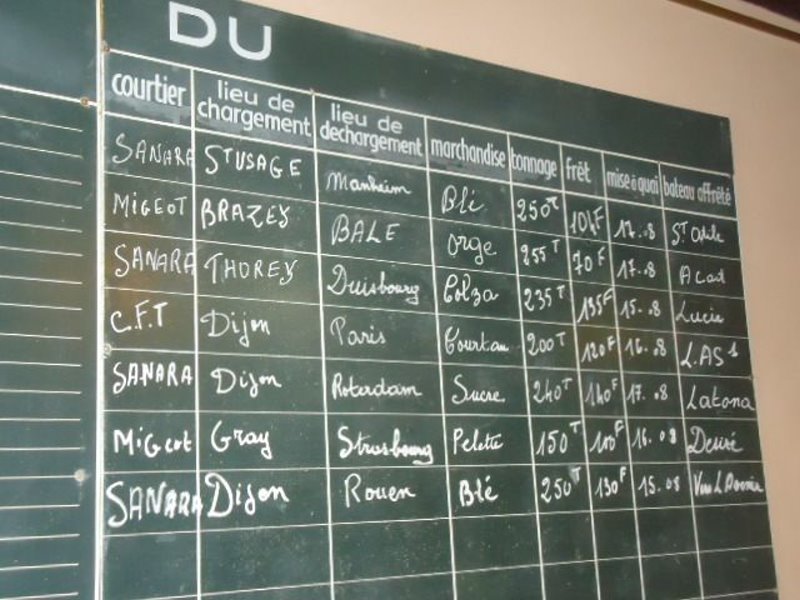 DU
courtier lieu de chargement lieu de dechargement marchandise tonnage frêt mise à quai bateau affrêté
SANARA STUSAGE Manheim Blé 250T 104F 17.08 ST Odile
MIGEOT BRAZEY BALE Orge 255T 70F 17.08 Acad
SANARA THOREY Duisbourg Colza 235T 135F 15.08 Lucie
C.F.T Dijon Paris Tourteau 200T 120F 16.08 L.AS
SANARA Dijon Roterdam Sucre 240T 140F 17.08 Latona
MIGEOT Gray Strasbourg Pelette 150T 100F 16.08 Désiré
SANARA Dijon Rouen Blé 250T 130F 15.08